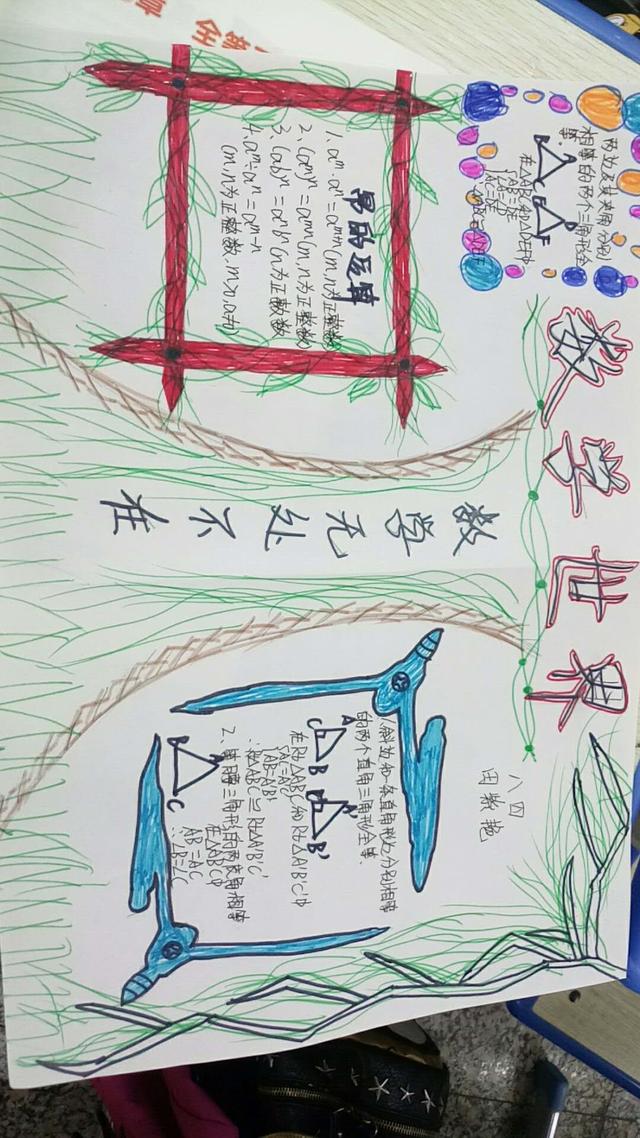 数学世界
两边及其夹角分别
相等的两个三角形全
等.
A D
B C E F
在△ABC和△DEF中
AB=DE
AC=DF
幂的运算
1. aᵐ·aⁿ=aᵐ⁺ⁿ(m,n为正整数)
2. (aᵐ)ⁿ=aᵐⁿ(m,n为正整数)
3. (ab)ⁿ=aⁿbⁿ(n为正整数)
4. aᵐ÷aⁿ=aᵐ⁻ⁿ
(m,n为正整数,m>n,a≠0)
数学无处不在
八四
田紫艳
1.斜边和一条直角边分别相等
的两个直角三角形全等
A A'
C B C' B'
在Rt△ABC和Rt△A'B'C'中
AB=A'B'
∴Rt△ABC≌Rt△A'B'C'
2、等腰三角形的两底角相等
A
B C
在△ABC中
AB=AC
∴∠B=∠C